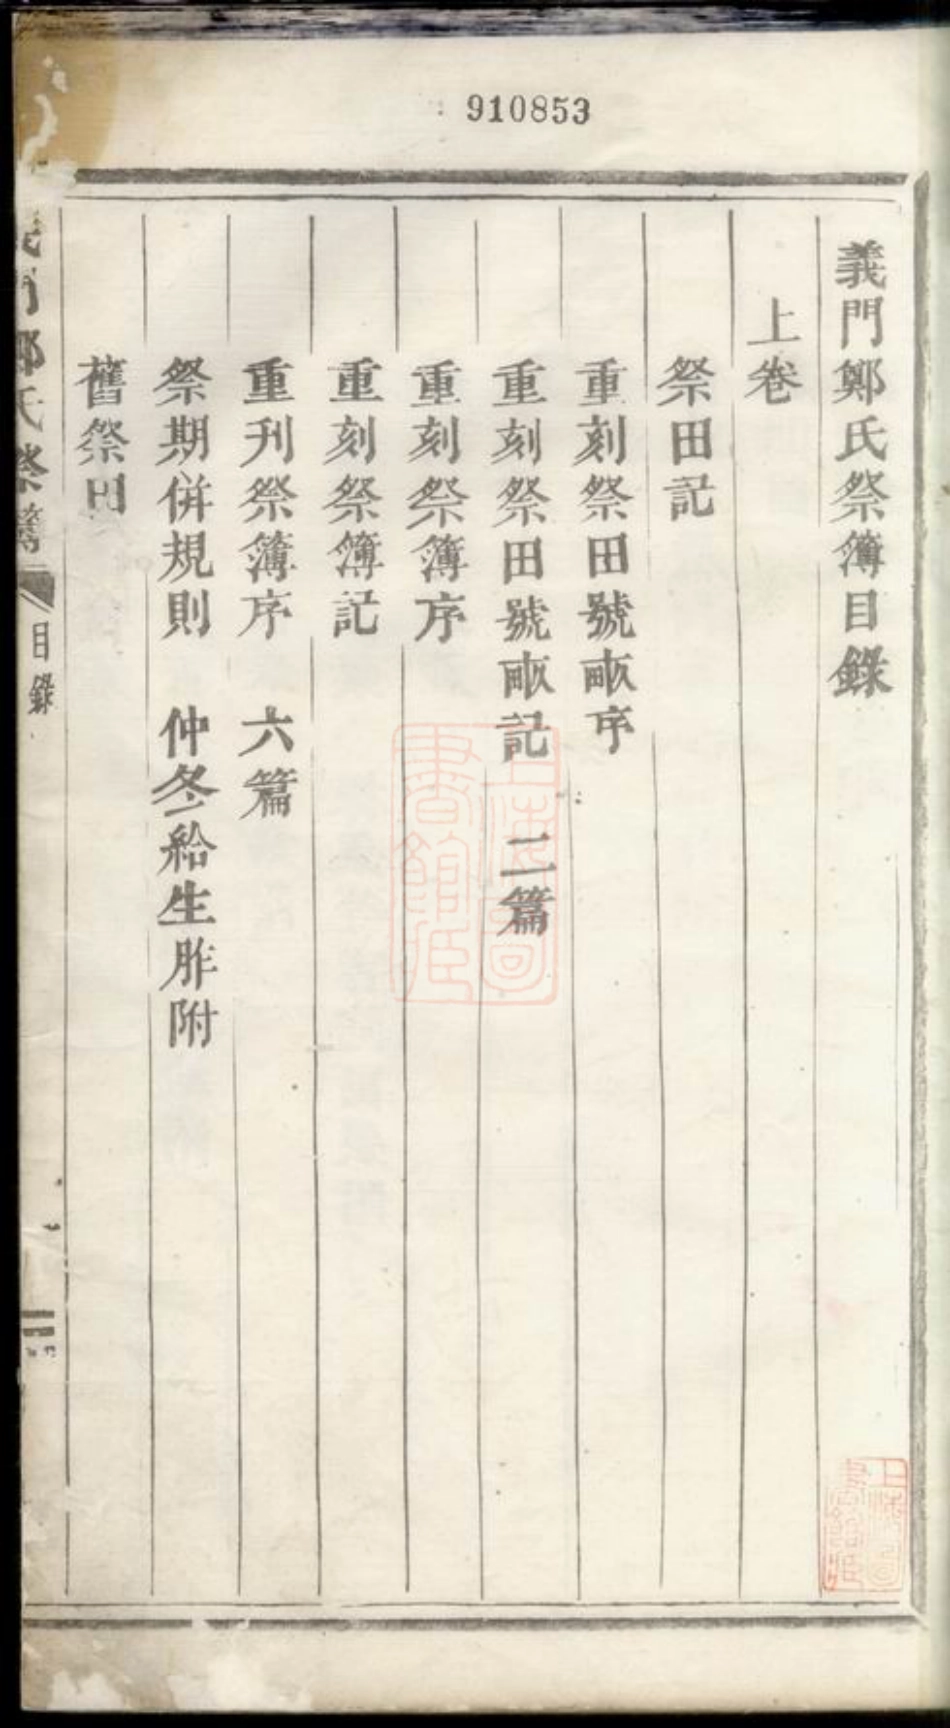 910853
義門鄭氏祭簿目錄
上卷
祭田記
重刻祭田號畝序
重刻祭田號畝記 二篇
重刻祭簿序
重刻祭簿記
重刊祭簿序 六篇
祭期併規則 仲冬給生胙附
舊祭田
義門鄭氏祭簿 目錄
上海圖書館藏
上海圖書館藏